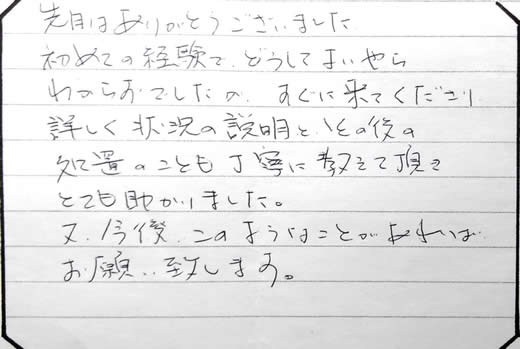 先日はありがとうございました
初めての経験で、どうしてよいやら
わからずでしたの、すぐに来てくださり
詳しく状況の説明と、その後の
処置のことも丁寧に教えて頂き
とても助かりました。
又、今後、このようなことがあれば
お願い致します。